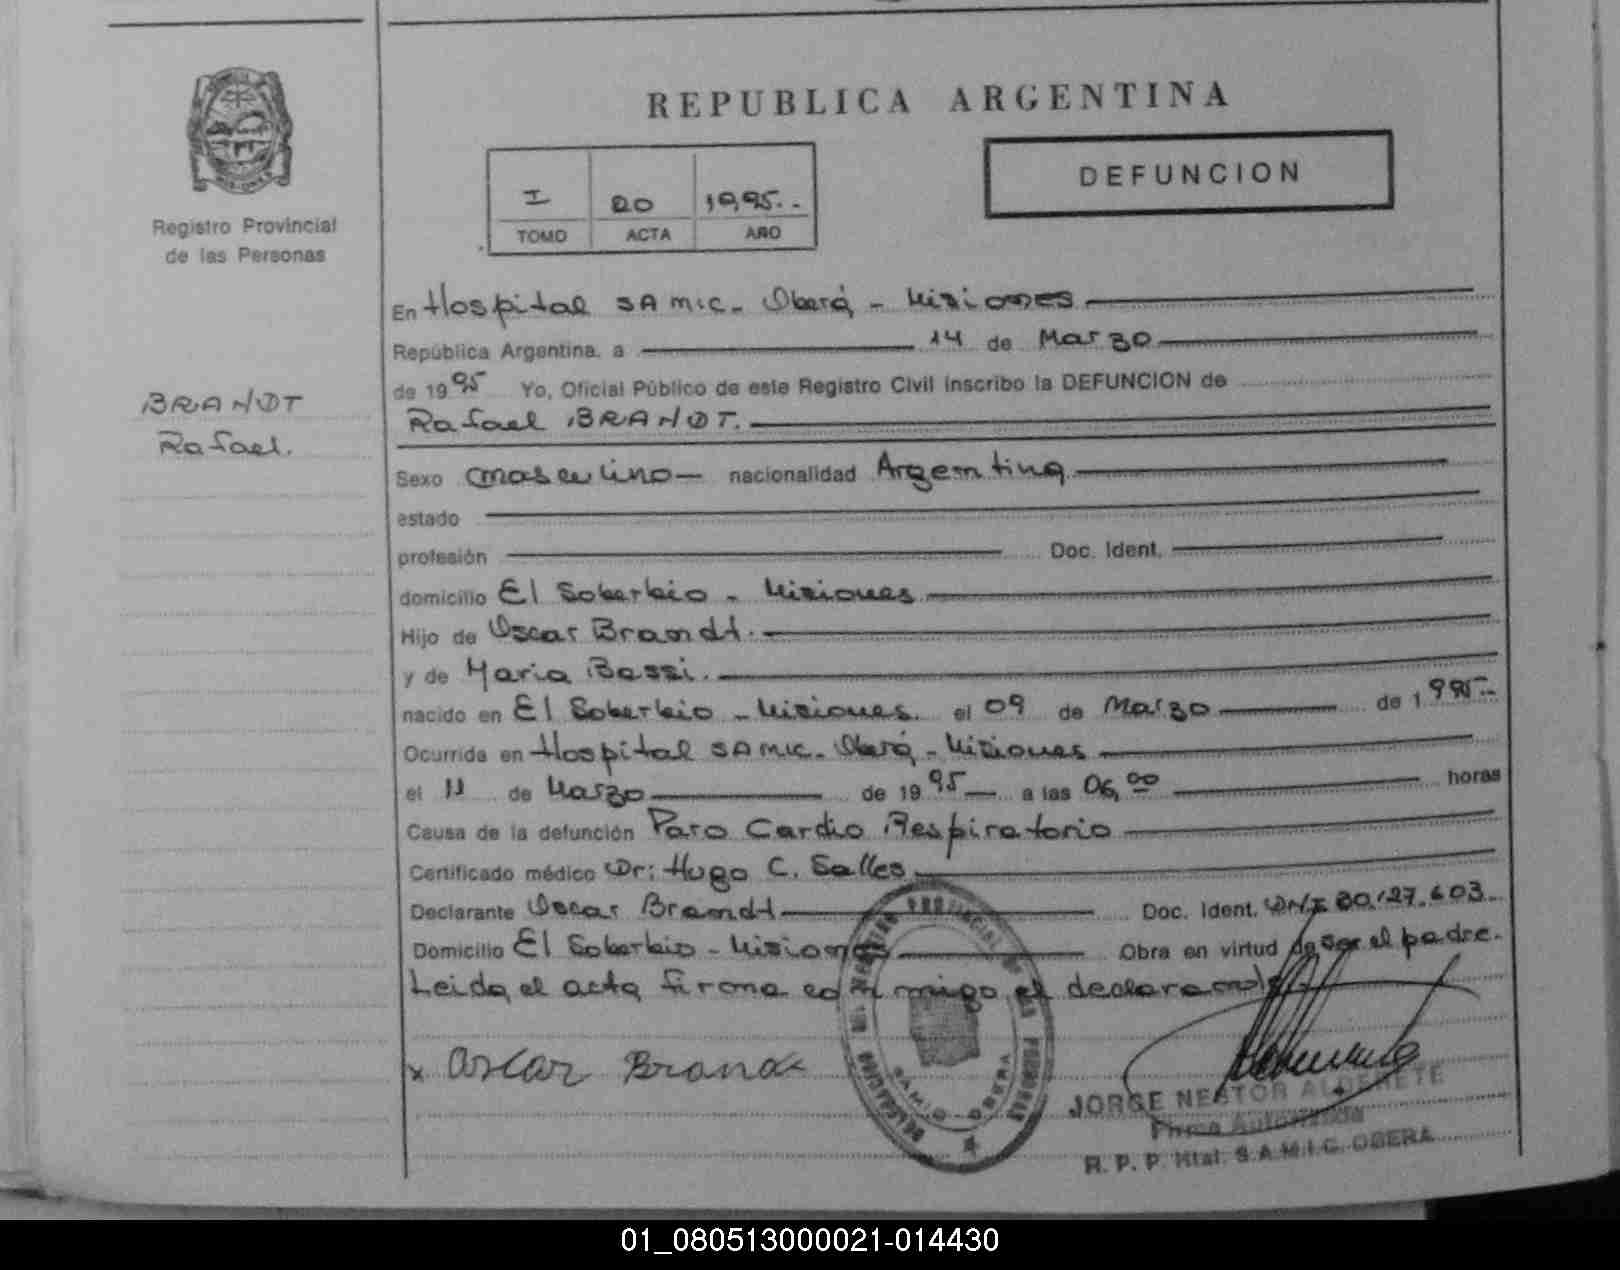 REPUBLICA ARGENTINA
DEFUNCION
I 20 1995..
TOMO ACTA AÑO
Registro Provincial
de las Personas
BRANDT
Rafael.
En Hospital SAMIC - Oberá - Misiones
República Argentina, a 14 de Marzo
de 1995 Yo, Oficial Público de este Registro Civil inscribo la DEFUNCION de
Rafael BRANDT.
Sexo masculino nacionalidad Argentina
estado
profesión Doc. Ident.
domicilio El Soberbio - Misiones
Hijo de Oscar Brandt.
y de Maria Bassi.
nacido en El Soberbio - Misiones. el 09 de Marzo de 1995..
Ocurrida en Hospital SAMIC - Oberá - Misiones
el 11 de Marzo de 1995 a las 06,00 horas
Causa de la defunción Paro Cardio Respiratorio
Certificado médico Dr: Hugo C. Salles
Declarante Oscar Brandt Doc. Ident. DNI 30.127.603..
Domicilio El Soberbio - Misiones Obra en virtud de ser el padre.
Leida el acta firma conmigo el declarante.
x Oscar Brand
JORGE NESTOR ALDERETE
Firma Autorizada
R. P. P. Htal. S.A.M.I.C. OBERA
01_080513000021-014430